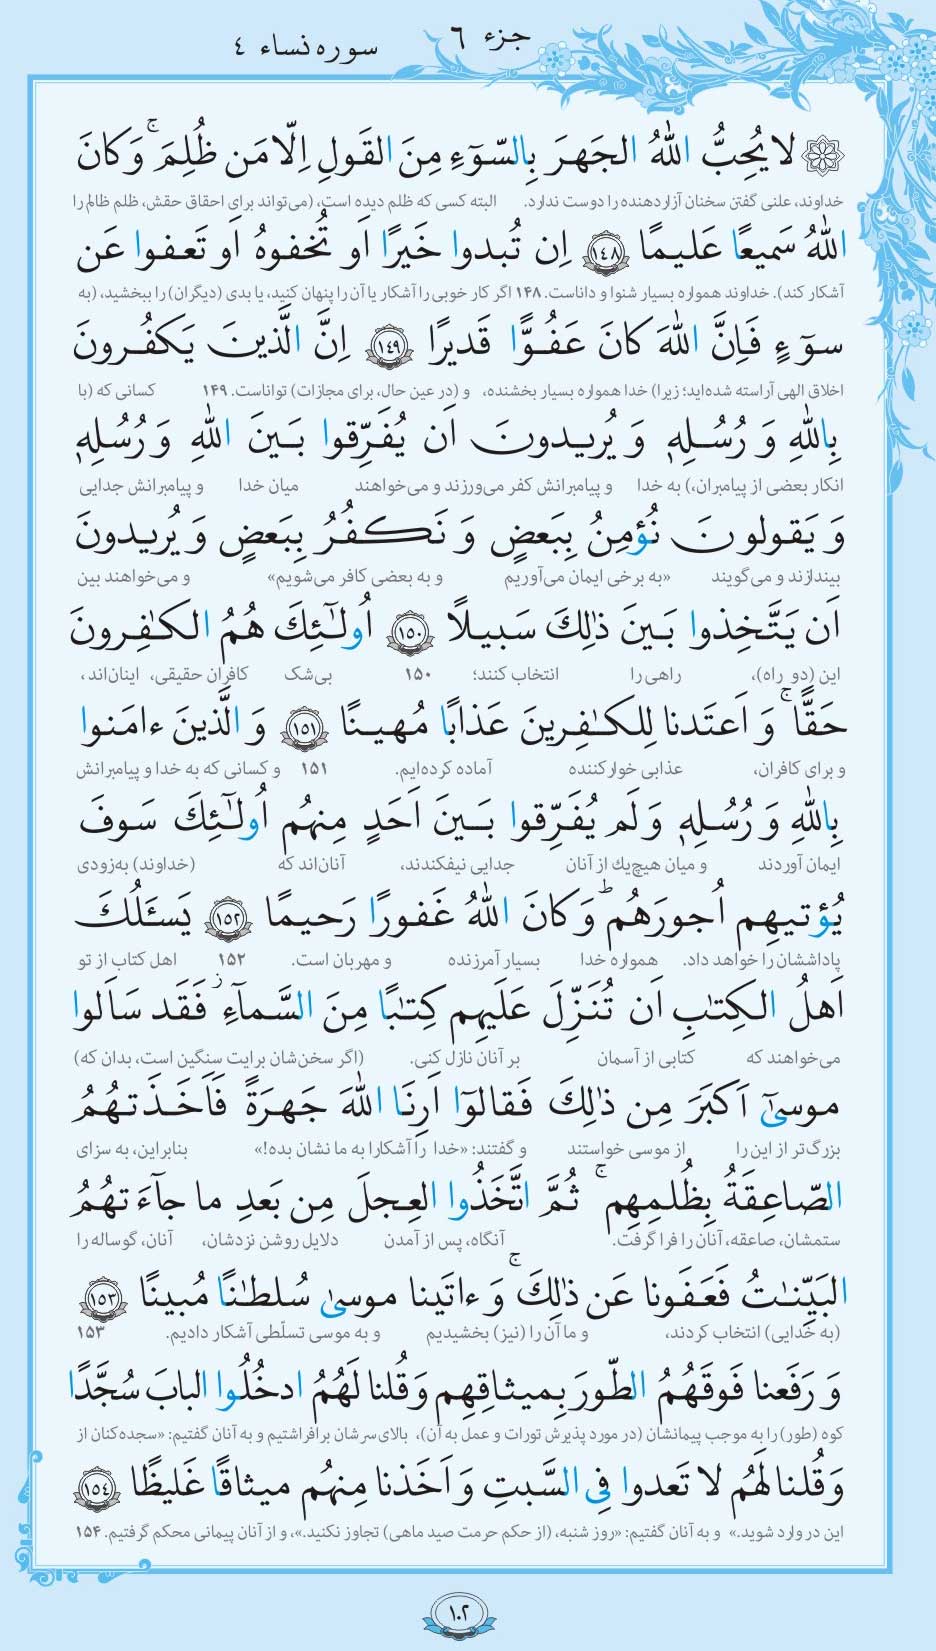 جزء ٦
سوره نساء ٤
لا يُحِبُّ اللهُ الجَهرَ بِالسّوٓءِ مِنَ القَولِ اِلّا مَن ظُلِمَ ۚ وَ كانَ
خداوند، علنی گفتن سخنان آزاردهنده را دوست ندارد. البته کسی که ظلم دیده است، (می‌تواند برای احقاق حقش، ظلم ظالم را
اللهُ سَميعًا عَليمًا ١٤٨ اِن تُبدوا خَيرًا اَو تُخفوهُ اَو تَعفوا عَن
آشکار کند). خداوند همواره بسیار شنوا و داناست. ۱۴۸ اگر کار خوبی را آشکار یا آن را پنهان کنید، یا بدی (دیگران) را ببخشید، (به
سوٓءٍ فَاِنَّ اللهَ كانَ عَفُوًّا قَديرًا ١٤٩ اِنَّ الَّذينَ يَكفُرونَ
اخلاق الهی آراسته شده‌اید؛ زیرا) خدا همواره بسیار بخشنده، و (در عین حال، برای مجازات) تواناست. ۱۴۹ کسانی که (با
بِاللهِ وَ رُسُلِهٖ وَ يُريدونَ اَن يُفَرِّقوا بَينَ اللهِ وَ رُسُلِهٖ
انکار بعضی از پیامبران،) به خدا و پیامبرانش کفر می‌ورزند و می‌خواهند میان خدا و پیامبرانش جدایی
وَ يَقولونَ نُؤمِنُ بِبَعضٍ وَ نَكفُرُ بِبَعضٍ وَ يُريدونَ
بیندازند و می‌گویند «به برخی ایمان می‌آوریم و به بعضی کافر می‌شویم» و می‌خواهند بین
اَن يَتَّخِذوا بَينَ ذٰلِكَ سَبيلًا ١٥٠ اُولٰٓئِكَ هُمُ الكٰفِرونَ
این (دو راه)، راهی را انتخاب کنند؛ ۱۵۰ بی‌شک کافران حقیقی، اینان‌اند ،
حَقًّا ۚ وَ اَعتَدنا لِلكٰفِرينَ عَذابًا مُهينًا ١٥١ وَ الَّذينَ ءامَنوا
و برای کافران، عذابی خوارکننده آماده کرده‌ایم. ۱۵۱ و کسانی که به خدا و پیامبرانش
بِاللهِ وَ رُسُلِهٖ وَ لَم يُفَرِّقوا بَينَ اَحَدٍ مِنهُم اُولٰٓئِكَ سَوفَ
ایمان آوردند و میان هیچ‌یك از آنان جدایی نیفکندند، آنان‌اند که (خداوند) به‌زودی
يُؤتيهِم اُجورَهُم ۗ وَ كانَ اللهُ غَفورًا رَحيمًا ١٥٢ يَسـَٔلُكَ
پاداششان را خواهد داد. همواره خدا بسیار آمرزنده و مهربان است. ۱۵۲ اهل کتاب از تو
اَهلُ الكِتٰبِ اَن تُنَزِّلَ عَلَيهِم كِتٰبًا مِنَ السَّمآءِ ۚ فَقَد سَاَلوا
می‌خواهند که کتابی از آسمان بر آنان نازل کنی. (اگر سخن‌شان برایت سنگین است، بدان که)
موسىٰٓ اَكبَرَ مِن ذٰلِكَ فَقالوٓا اَرِنَا اللهَ جَهرَةً فَاَخَذَتهُمُ
بزرگ‌تر از این را از موسی خواستند و گفتند: «خدا را آشکارا به ما نشان بده!» بنابراین، به سزای
الصّاعِقَةُ بِظُلمِهِم ۚ ثُمَّ اتَّخَذُوا العِجلَ مِن بَعدِ ما جآءَتهُمُ
ستمشان، صاعقه، آنان را فرا گرفت. آنگاه، پس از آمدن دلایل روشن نزدشان، آنان، گوساله را
البَيِّنٰتُ فَعَفَونا عَن ذٰلِكَ ۚ وَ ءاتَينا موسىٰ سُلطٰنًا مُبينًا ١٥٣
(به خدایی) انتخاب کردند، و ما آن را (نیز) بخشیدیم و به موسی تسلّطی آشکار دادیم. ۱۵۳
وَ رَفَعنا فَوقَهُمُ الطّورَ بِميثاقِهِم وَ قُلنا لَهُمُ ادخُلُوا البابَ سُجَّدًا
کوه (طور) را به موجب پیمانشان (در مورد پذیرش تورات و عمل به آن)، بالای سرشان برافراشتیم و به آنان گفتیم: «سجده‌کنان از
وَ قُلنا لَهُم لا تَعدوا فِى السَّبتِ وَ اَخَذنا مِنهُم ميثاقًا غَليظًا ١٥٤
این در وارد شوید.» و به آنان گفتیم: «روز شنبه، (از حکم حرمت صید ماهی) تجاوز نکنید.»، و از آنان پیمانی محکم گرفتیم. ۱۵۴
١٠٢